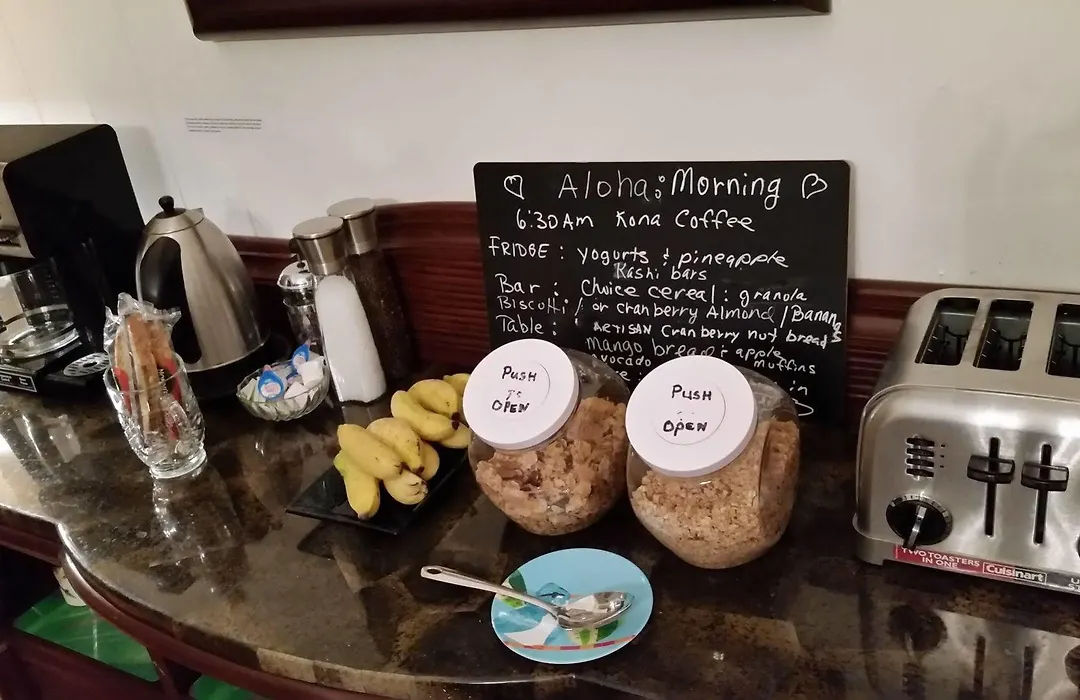 Aloha: Morning
6:30AM Kona Coffee
FRIDGE: yogurts & pineapple
Kashi bars
Bar: Choice cereal: granola
Biscotti / or cranberry Almond / Banana
Table: ARTISAN cranberry nut breads
mango bread: apple
avocado muffins
in
PUSH
TO
OPEN
PUSH
OPEN
TWO TOASTERS
IN ONE
Cuisinart